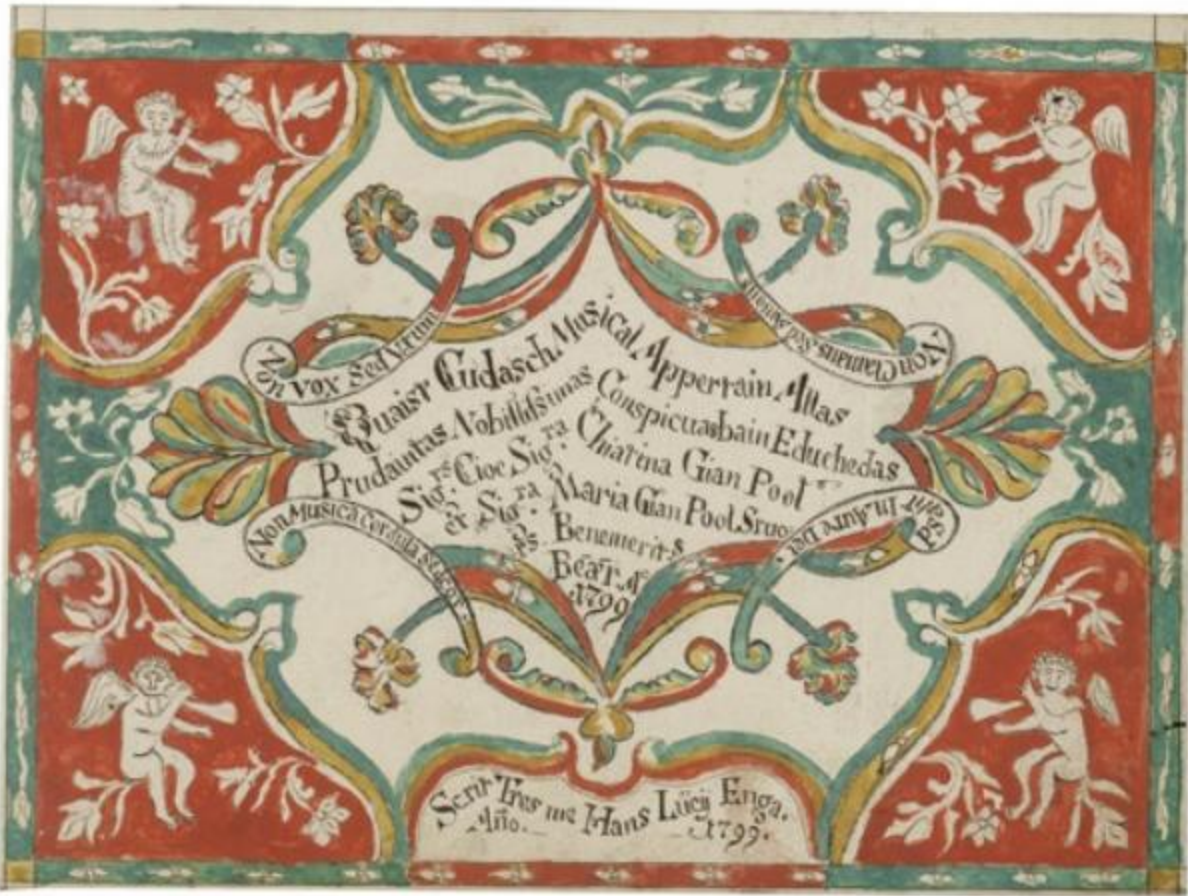 Non Vox Sed Votum
Non Clamans Sed Amans
Quaist Cudasch Musical Appertain Allas
Prudaintas Nobillissimas Conspicuas bain Educhedas
Sig.rs Cioe Sig.ra Chiatrina Gian Pool
et Sig.ra Maria Gian Pool Sruors
Benemerits
Beat. A°
1799
Non Musica Cordula sed Cor
Psallit In Aure Dei.
Scrit Tres me Hans Lücij Enga.
Año. 1799.